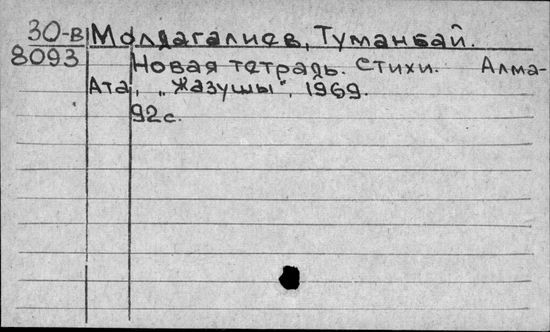 30-в Молдагалиев, Туманбай.
8093 Новая тетрадь. Стихи. Алма-
Ата, „Жазушы", 1969.
92 с.